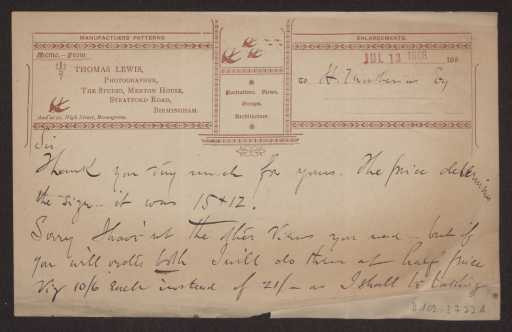 MANUFACTURERS PATTERNS
ENLARGEMENTS.
Memo.—from
THOMAS LEWIS,
PHOTOGRAPHER,
THE STUDIO, MERTON HOUSE,
STRATFORD ROAD,
BIRMINGHAM.
And at 22, High Street, Bromsgrove.
Portraiture, Views,
Groups,
Architecture
JUL 13
189
to H Esq
Sir
Thank you very much for yours. The price determine
the size - it was 15 + 12.
Sorry I have'nt the other views you need - but if
you will order both I will do them at half price
viz 10/6 each instead of 21/- as I shall be taking